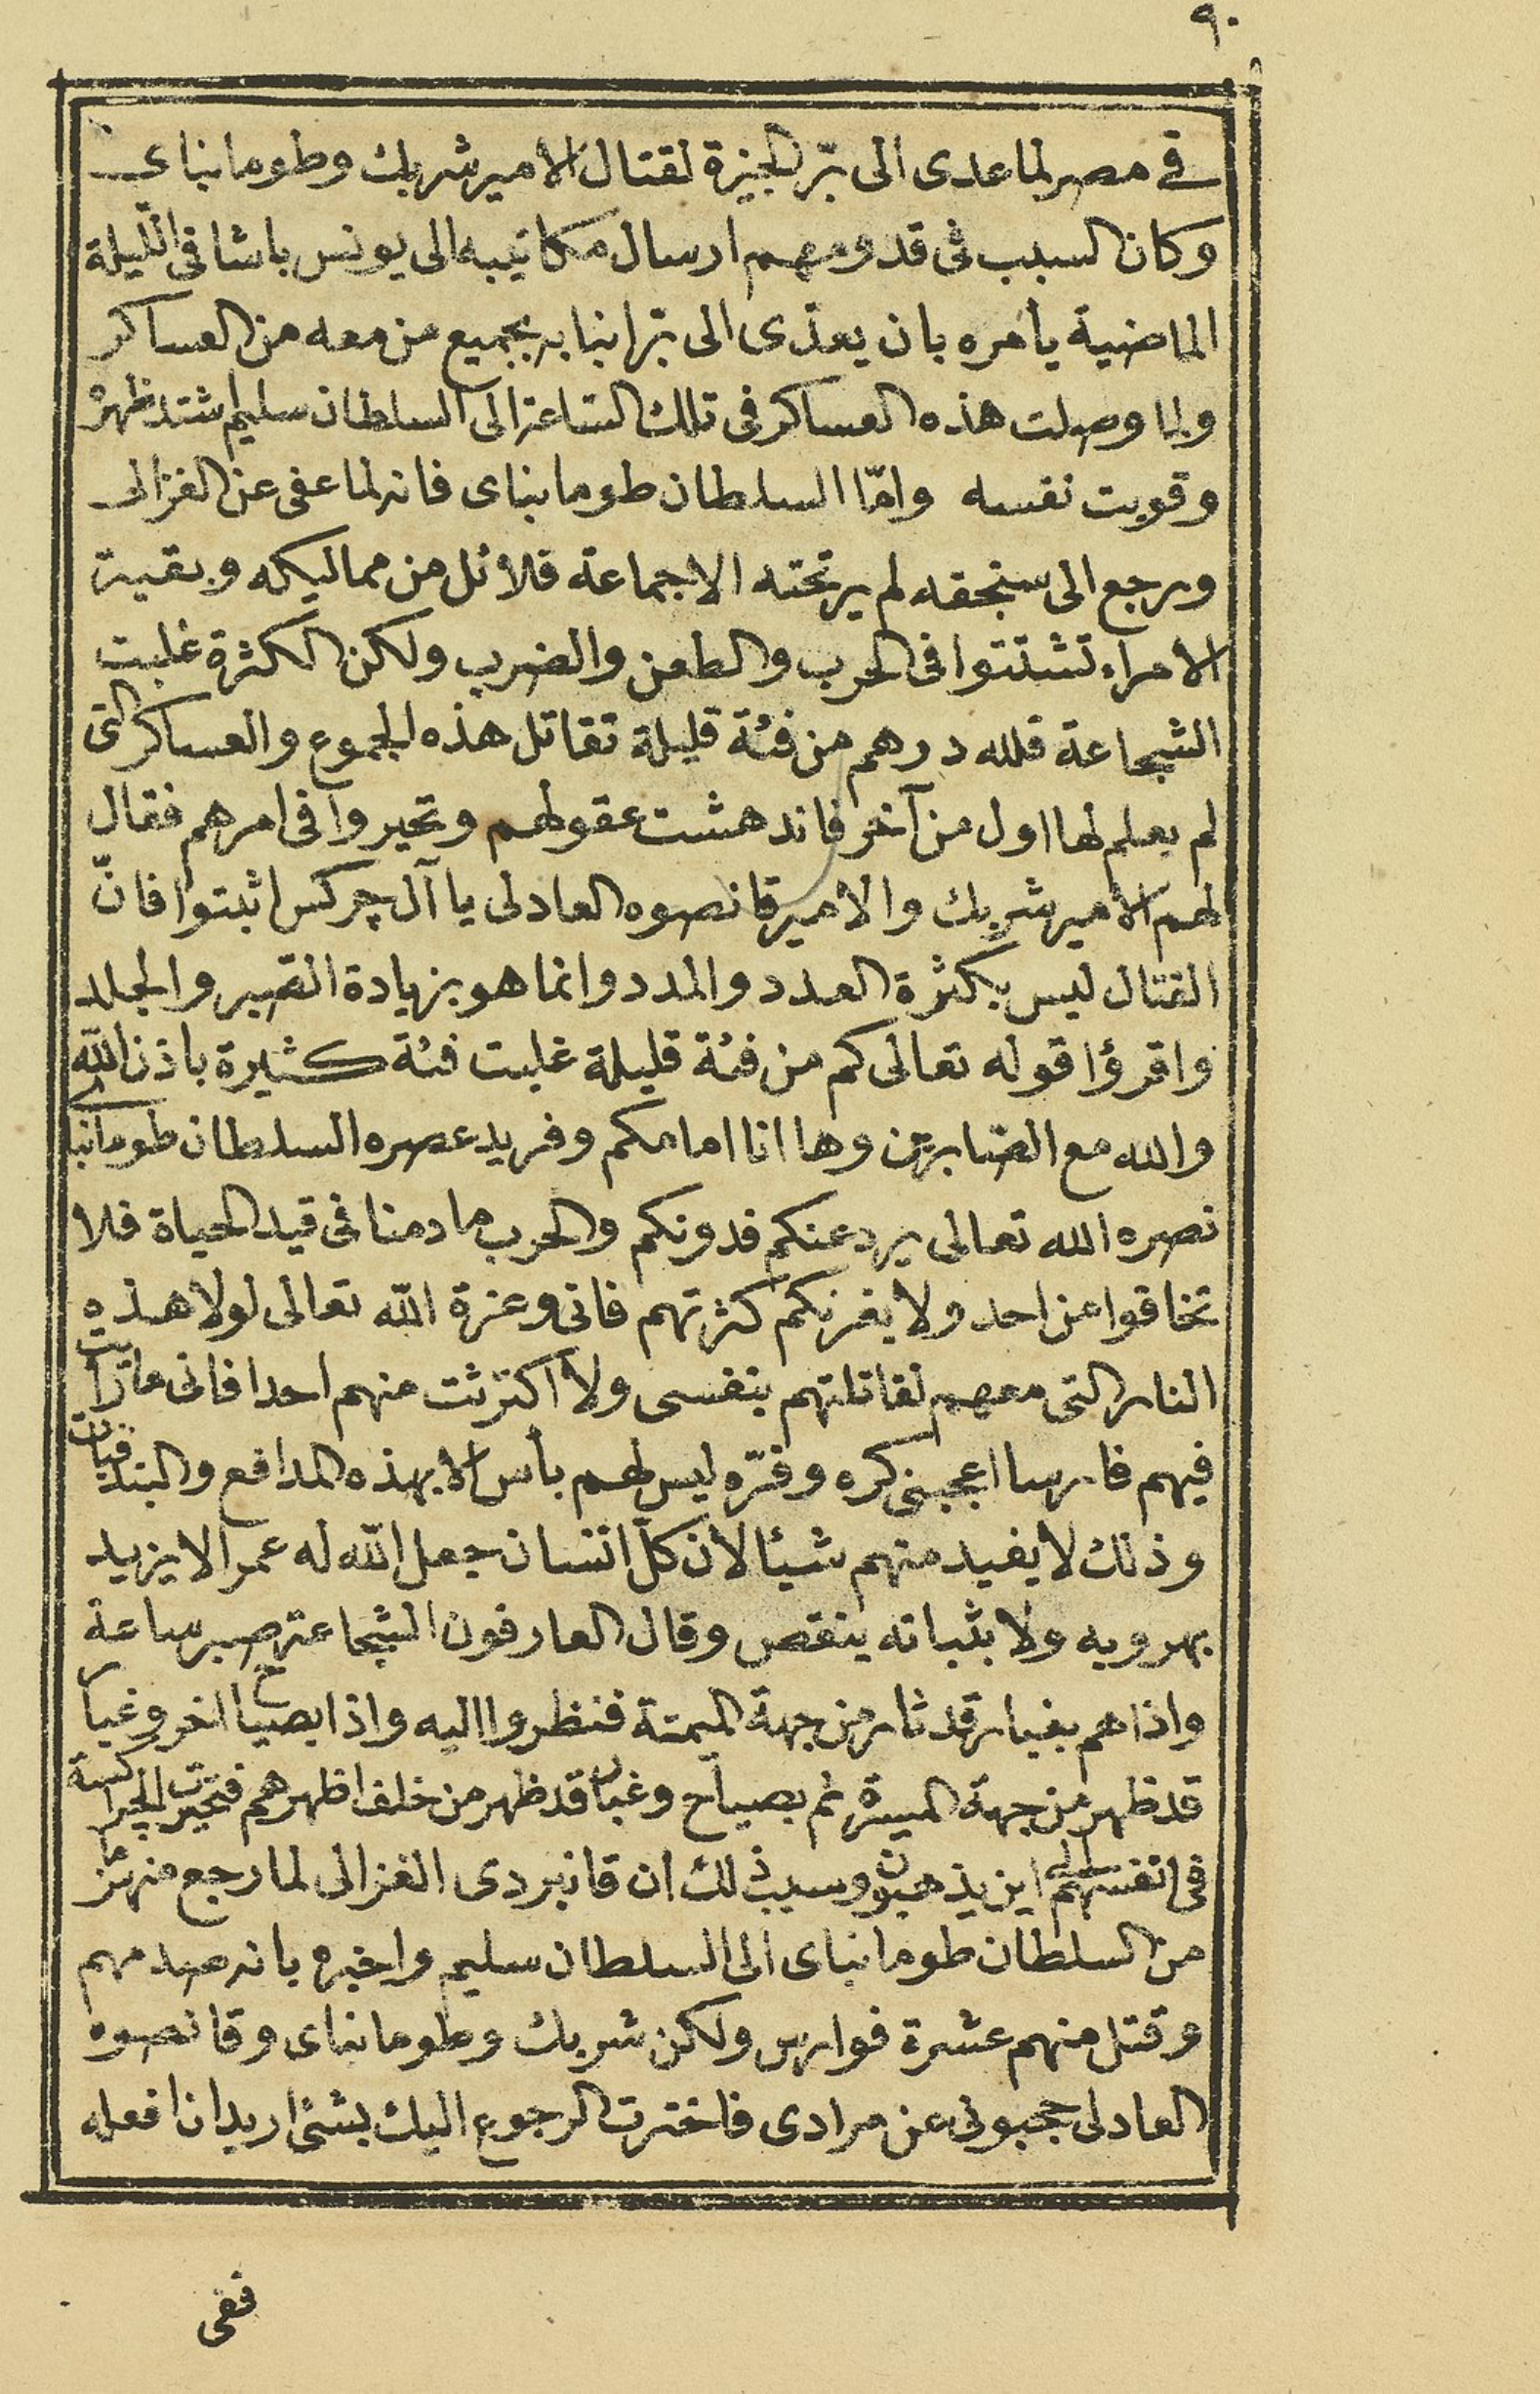 ٩٠
في مصر لما عدى الى برّ الجيزة لقتال الامير شربك وطومانباى
وكان السبب فى قدومهم ارسال مكاتيبه الى يونس باشا فى اللّيلة
الماضية يأمره بان يعدّى الى برّ انبابه بجميع من معه من العساكر
ولما وصلت هذه العساكر فى تلك السّاعة الى السلطان سليم اشتد ظهره
وقويت نفسه وامّا السلطان طومانباى فانه لما عفى عن الغزالى
ورجع الى سنجقه لم ير تحته الا جماعة قلائل من مماليكه وبقية
الامراء تشتتوا فى الحرب والطعن والضرب ولكن الكثرة غلبت
الشجاعة فلله درهم من فئة قليلة تقاتل هذه الجموع والعساكر التى
لم يعلم لها اول من آخر فاندهشت عقولهم وتحيروا فى امرهم فقال
لهم الامير شربك والامير قانصوه العادلى يا آل چركس اثبتوا فانّ
القتال ليس بكثرة العدد والمدد وانما هو بزيادة الصّبر والجلد
واقرؤا قوله تعالى كم من فئة قليلة غلبت فئة كثيرة باذن اللّه
والله مع الصّابرين وها انا امامكم وفريد عصره السلطان طومانباى
نصره الله تعالى يرد عنكم فدونكم والحرب ما دمنا فى قيد الحياة فلا
تخافوا من احد ولا يغرنكم كثرتهم فانى وعزة اللّه تعالى لولا هذه
النار التى معهم لقاتلتهم بنفسى ولا اكترثت منهم احدا فانى ما رأيت
فيهم فارسا اعجبنى كره وفرّه وليس لهم بأس الا بهذه المدافع والبندقيات
وذلك لا يفيد منهم شيئا لان كلّ انسان جعل اللّه له عمرا لا يزيد
بهروبه ولا بثباته ينقص وقال العارفون الشجاعة صبر ساعة
واذا هم بغبار قد ثار من جهة الميمنة فنظروا اليه واذا بصياح اخر وغبار
قد ظهر من جهة الميسرة ثم بصياح وغبار قد ظهر من خلف اظهرهم فتحيرت الچراكسة
فى انفسهم الى اين يذهبون وسبب ذلك ان قانبردى الغزالى لما رجع منهزما
من السلطان طومانباى الى السلطان سليم واخبره بانه صدمهم
وقتل منهم عشرة فوارس ولكن شربك وطومانباى وقانصوه
العادلى حجبونى عن مرادى فاخترت الرجوع اليك بشئ اريد ان افعله
ففى